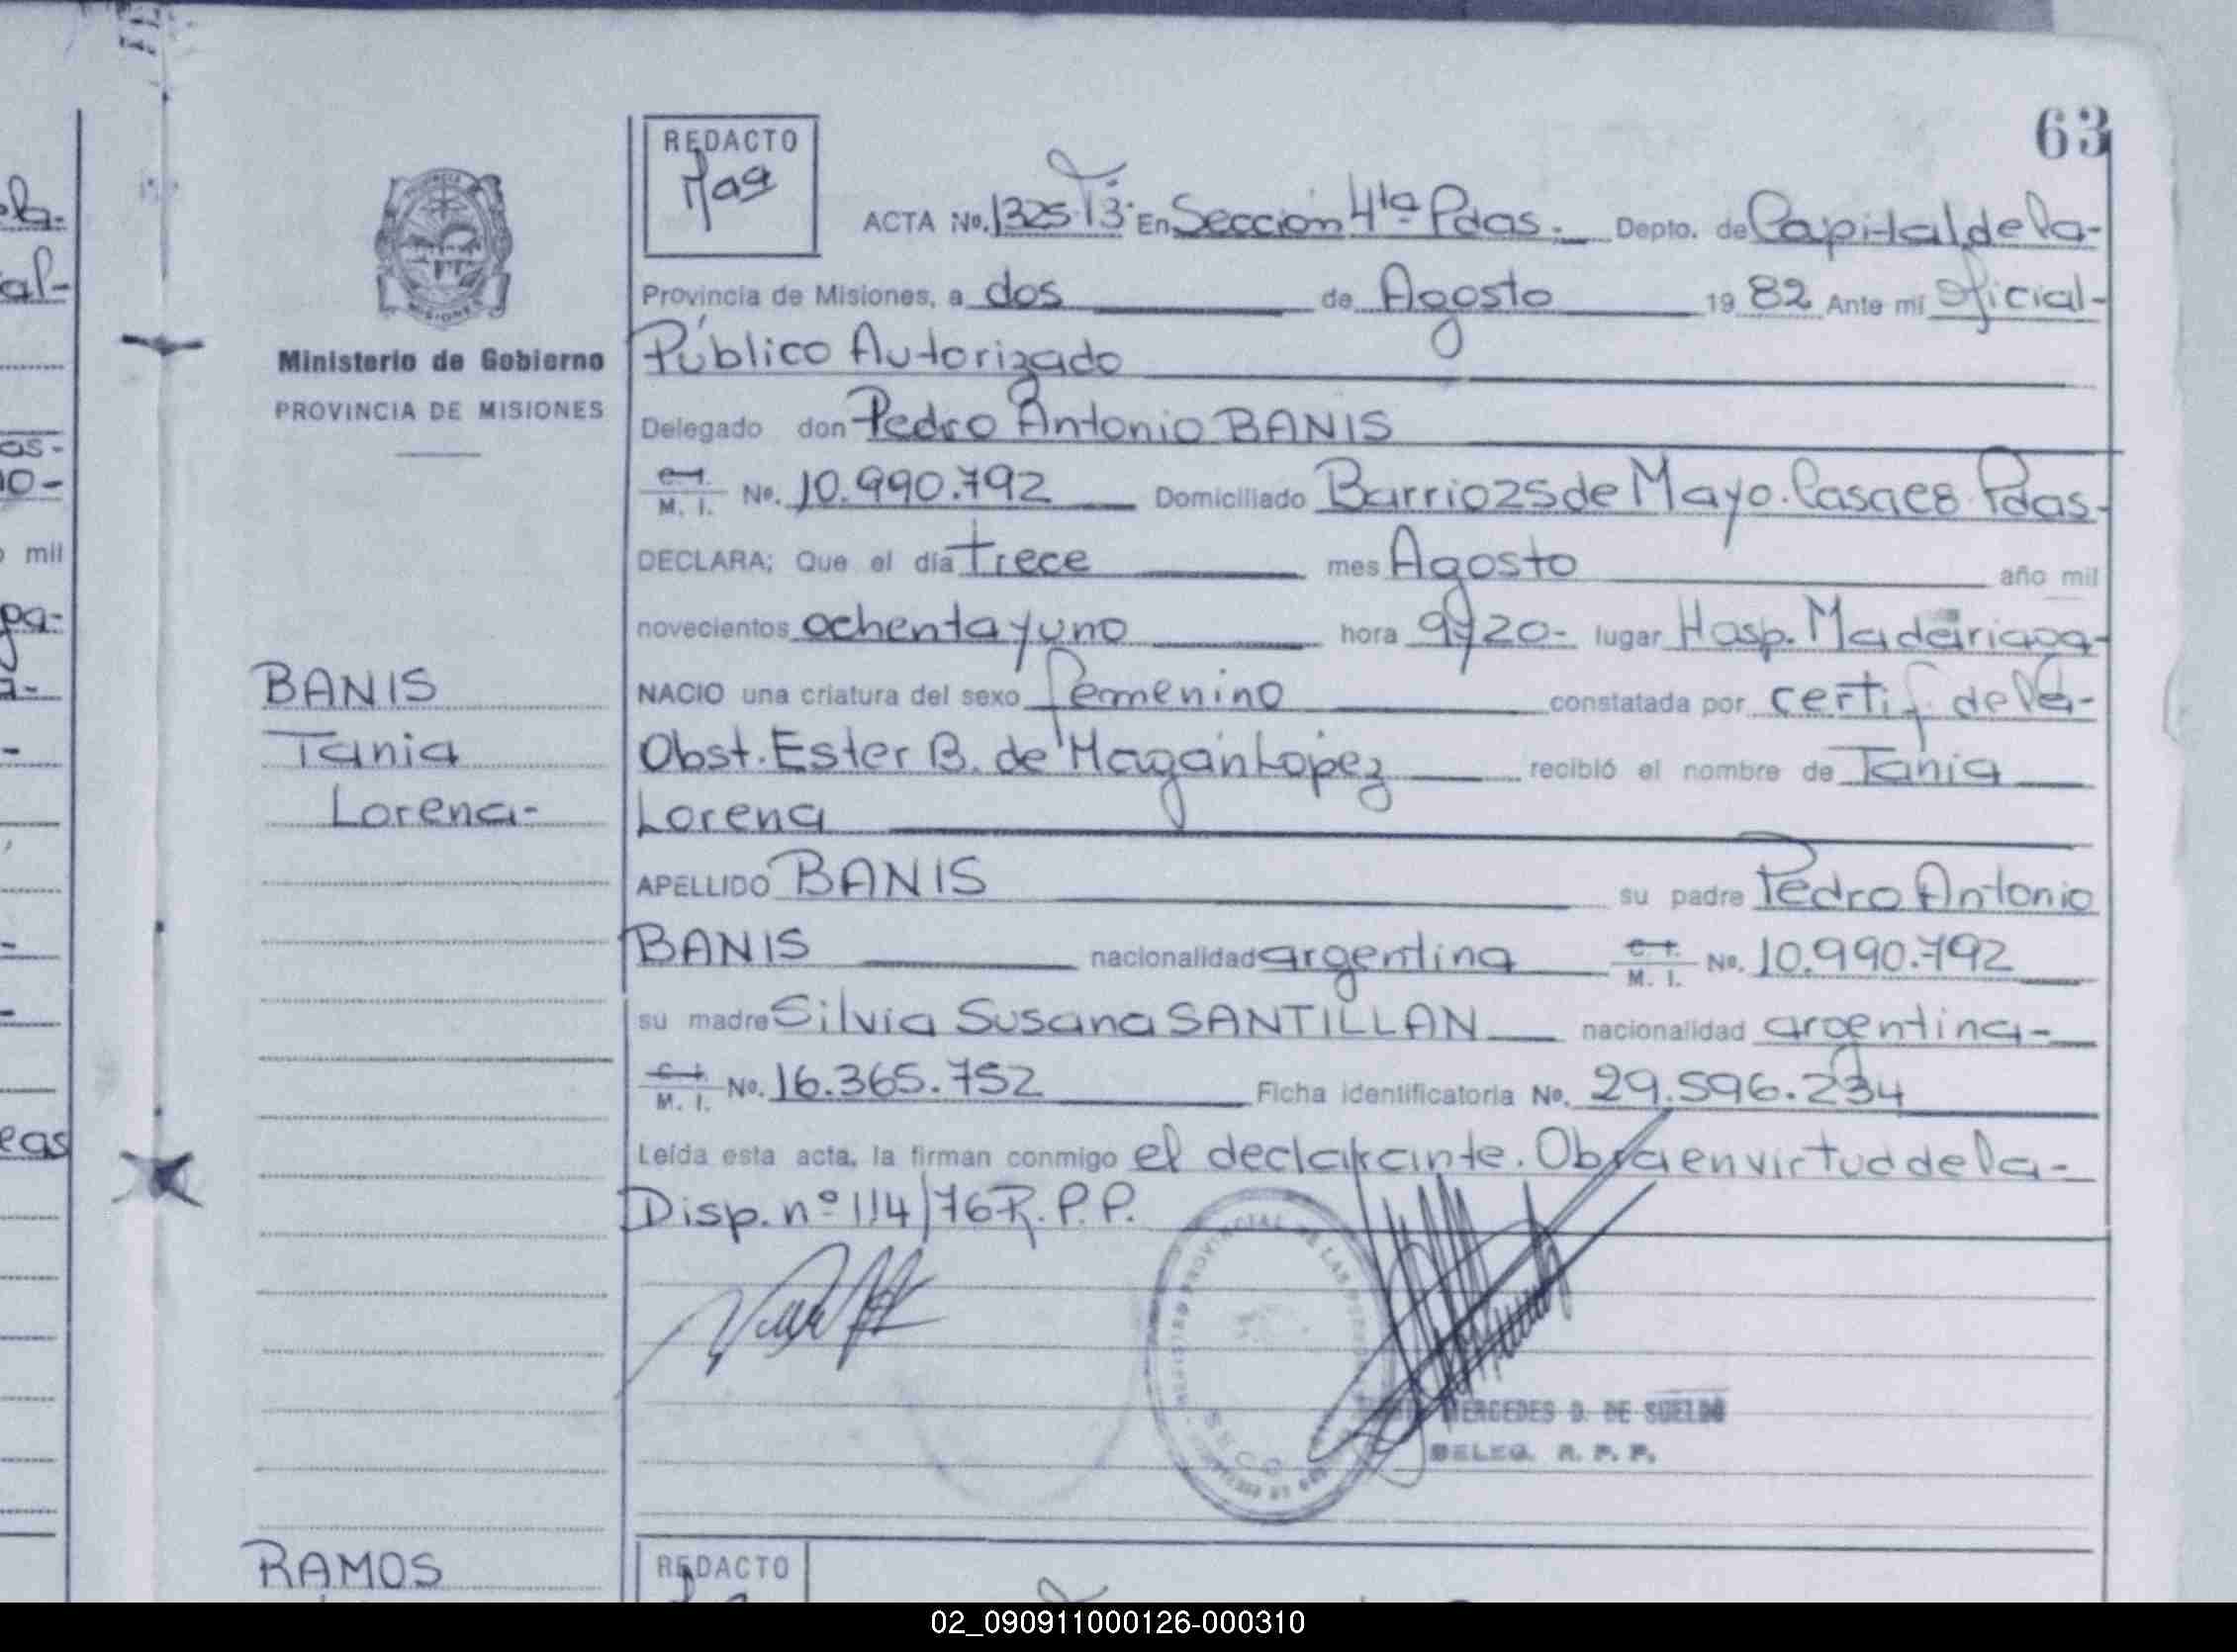 63
REDACTO
ACTA No. 1325 T3 En Sección 4ta Pdas. Depto. de Capital de la-
Provincia de Misiones, a dos de Agosto 19 82 Ante mí Oficial-
Público Autorizado
Delegado don Pedro Antonio BANIS
C. I. M. I. No. 10.990.792 Domiciliado Barrio 25 de Mayo. Casa E8 Pdas-
DECLARA; Que el día trece mes Agosto año mil
novecientos ochenta y uno hora 9 y 20- lugar Hosp. Madariaga-
NACIO una criatura del sexo femenino constatada por certif de la-
Obst. Ester B. de Magán López recibió el nombre de Tania
Lorena
APELLIDO BANIS su padre Pedro Antonio
BANIS nacionalidad argentina C. I. M. I. No. 10.990.792
su madre Silvia Susana SANTILLAN nacionalidad argentina-
C. I. M. I. No. 16.365.752 Ficha identificatoria No. 29.596.234
Leída esta acta, la firman conmigo el declarante. Obra en virtud de la-
Disp. nº 114/76 R.P.P.
MERCEDES D. DE SUELDO
DELEG. R. P. P.
Ministerio de Gobierno
PROVINCIA DE MISIONES
BANIS
Tania
Lorena-
RAMOS
REDACTO
02_090911000126-000310